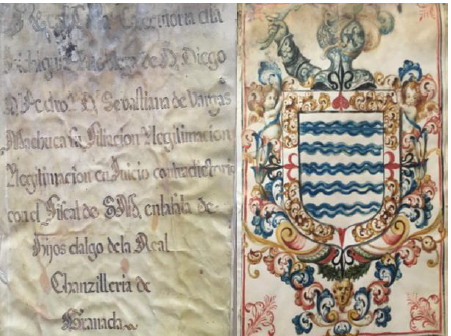 Executoria
Hidalguia D. Diego
D. Pedro D. Sebastiana de Vargas
Machuca su filiacion Y legitimacion
Y legitimacion en Juicio contradictorio
con el Fiscal de S.M. en la sala de
hijos dalgo de la Real
Chanzilleria de
Granada